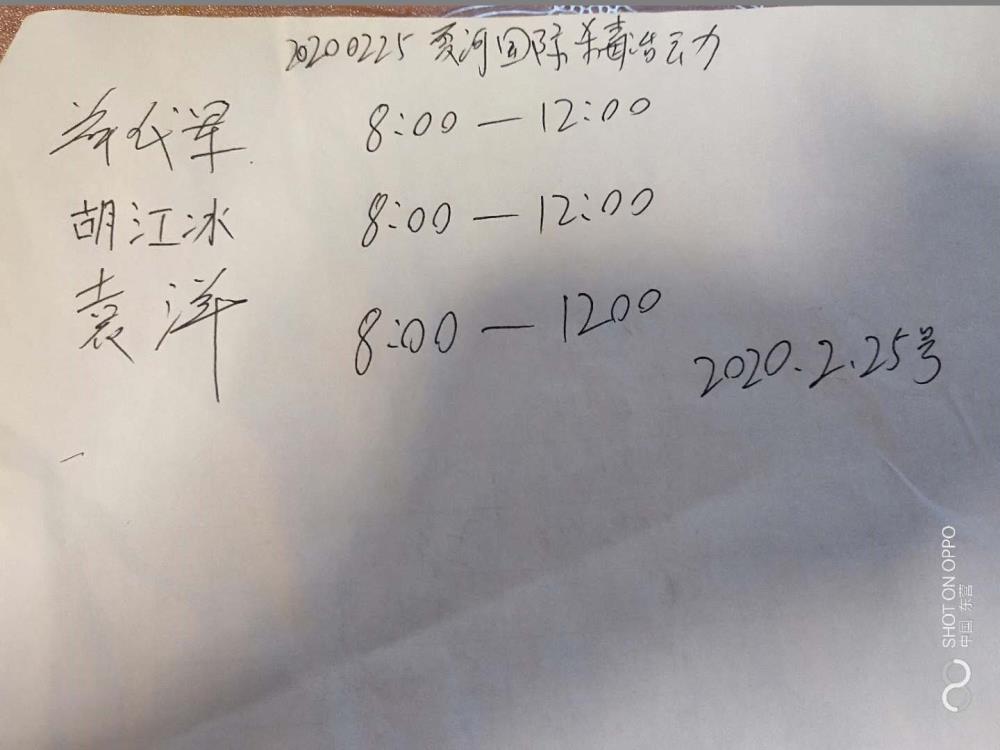 20200225 夏河国际杀毒活动
代军 8:00 — 12:00
胡江冰 8:00 — 12:00
袁洋 8:00 — 1200
2020.2.25号
SHOT ON OPPO
中国 东营